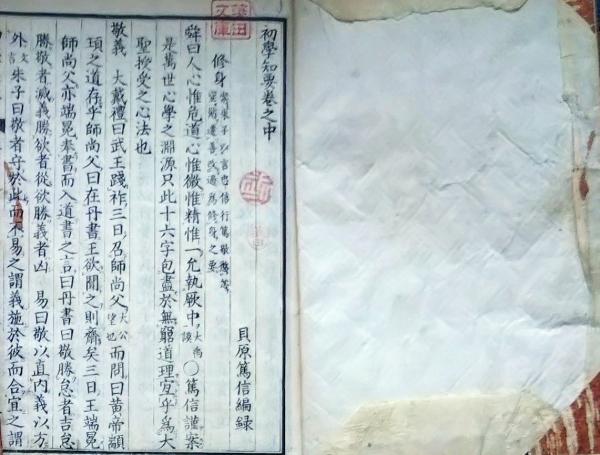 初學知要卷之中
貝原篤信編録
修身
舜曰人心惟危道心惟微惟精惟一允執厥中大禹謨○篤信謹案
是萬世心學之淵源只此十六字包盡於無窮道理宜乎爲大
聖授受之心法也
敬義 大戴禮曰武王踐祚三日召師尚父大公望也而問曰黄帝顓
頊之道存乎師尚父曰在丹書王欲聞之則齊矣三日王端冕
師尚父亦端冕奉書而入道書之言曰丹書曰敬勝怠者吉怠
勝敬者滅義勝欲者從欲勝義者凶 易曰敬以直内義以方
外文言朱子曰敬者守於此而不易之謂義施於彼而合宜之謂
文庫